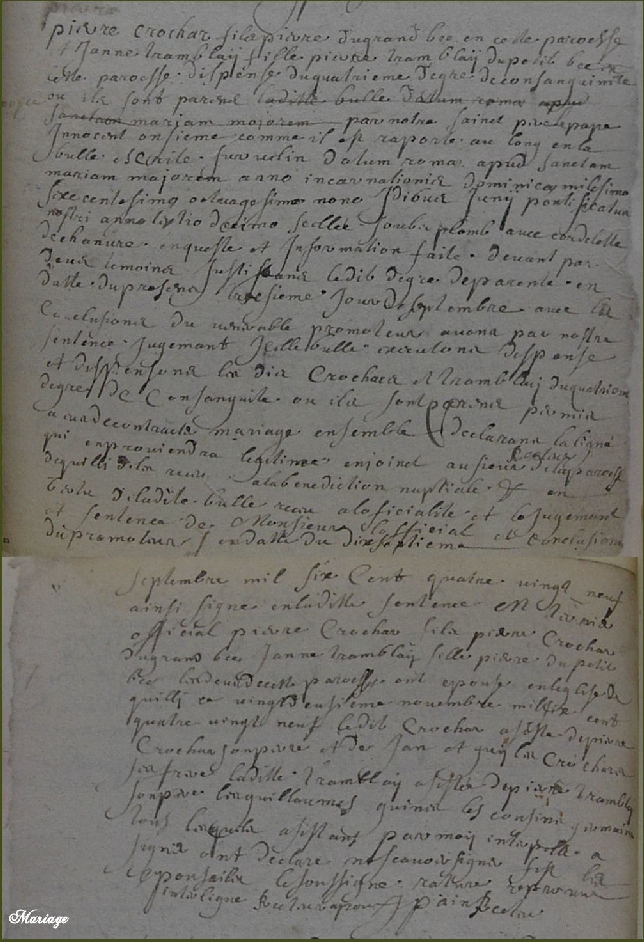 pierre crochar fils pierre du grand bec en cette paroesse
et Janne tramblaÿ fille pierre tramblaÿ du petit bec en
cette paroesse dispense du quatrieme degre de consanguinite
ou ils sont parens laditte bulle datum roma apud
sanctam mariam majorem par notre sainct pere pape
Innocent onsieme comme il est raporte au long en la
bulle escrite sur velin datum roma apud sanctam
mariam majorem anno incarnationis dominicas milesimo
sexcentesimo octuagesimo nono Idibus Juny pontificatus
nostri anno tertio decimo scellee soubs plomb avec cordelette
de chanure enqueste et Information faite devant par
deux temoins Justifians ledit degre de parente en
datte du present troisieme Jour de septembre avec les
Conclusions du venerable promoteur avons par nostre
sentence Jugemant Jcelle bulle executons dispense
et dispensons les dis Crochars et tramblaÿ du quatrieme
degre de Consanguite ou ils sont parens permis
a eux de contracter mariage ensemble declarans la ligné
qui en proviendra legitime enjoinct au sieur Recteur de la paroesse
de quilli de les recevoir a la benediction nuptiale & en
vertu de laditte bulle receu a lofficialite et le Jugemant
et sentence de Monsieur Lofficial et Conclusions
du promoteur en datte du dixseptieme
septembre mil six Cent quatre vingt neuf
ainsi signe en laditte sentence
official pierre Crochar fils pierre Crochar
du grand bec Janne tramblaÿ fille pierre du petit
bec les deux de cette paroesse ont epouse en leglise de
quilli ce vingt deusieme novembre mil six cent
quatre vingt neuf ledit Crochar asiste de pierre
Crochar son pere et de Jan et les Crochars
ses freres laditte tramblaÿ asistee de pierre tramblaÿ
son pere les guillaumes les consins germains
tous lesquels asistant par moy interpelle a
signe ont declare ne scavoir signer fist les
eponsailles le soussigne rature
interligne Recteur aprouve Recteur
Mariage